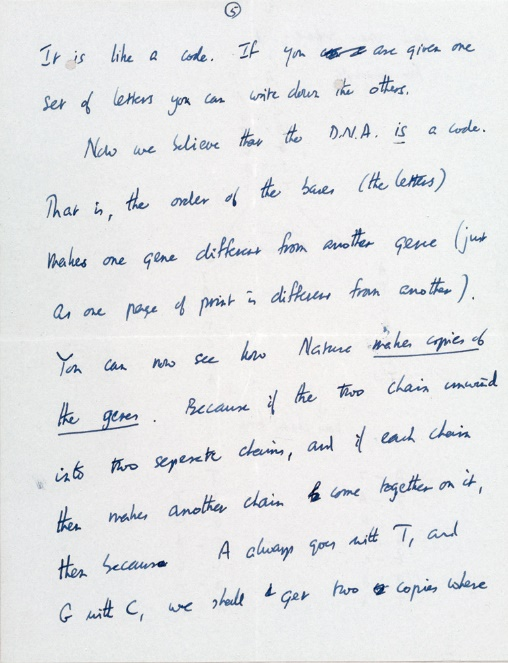 5
It is like a code. If you are given one
set of letters you can write down the others.
Now we believe that the D.N.A. is a code.
That is, the order of the bases (the letters)
makes one gene different from another gene (just
as one page of print is different from another).
You can now see how Nature makes copies of
the genes. Because if the two chains unwind
into two seperate chains, and if each chain
then makes another chain come together on it,
then because A always goes with T, and
G with C, we shall get two copies where